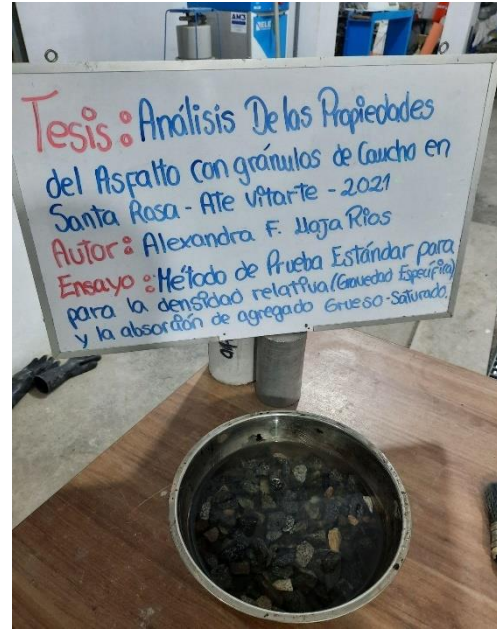 Tesis: Análisis De las Propiedades
del Asfalto con gránulos de Caucho en
Santa Rosa - Ate Vitarte - 2021
Autor: Alexandra F. Llaja Rios
Ensayo: Método de Prueba Estándar para
para la densidad relativa (Gravedad Específica)
y la absorción de agregado Grueso - Saturado.